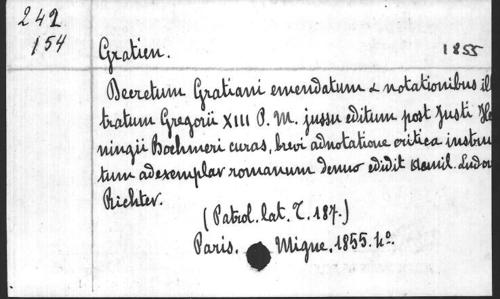 242
154
Gratien. 1855
Decretum Gratiani emendatum & notationibus il
tratum Gregorii XIII P. M. jussu editum post Justi He
ningii Boehmeri curas, brevi adnotatione critica instru
tum ad exemplar romanum denuo edidit Aemil. Ludov
Richter.
(Patrol. lat. T. 187.)
Paris. Migne. 1855. 4º.